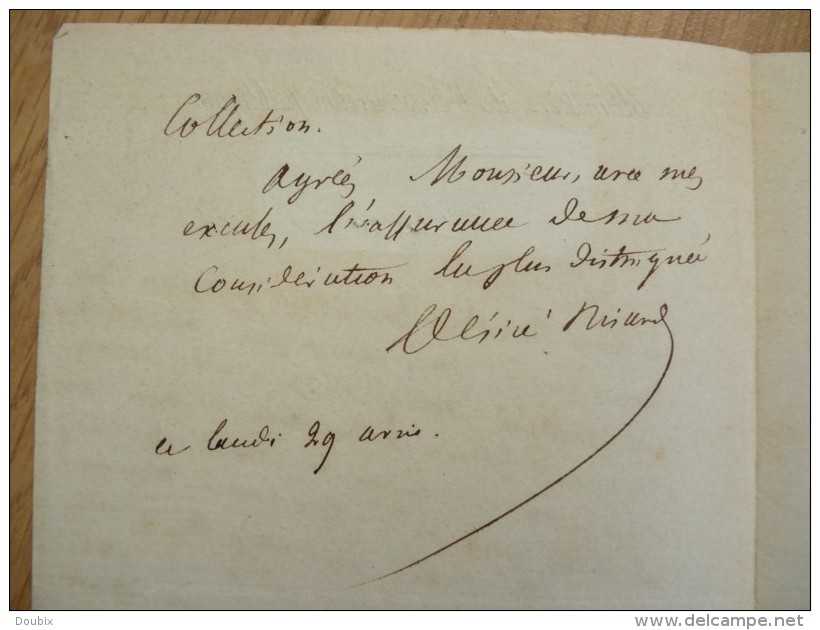 Collection.
agréez, Monsieur, avec mes
excuses, l'assurance de ma
Considération la plus distinguée
Désiré Nisard
ce lundi 29 avril.
Doubix
www.delcampe.net